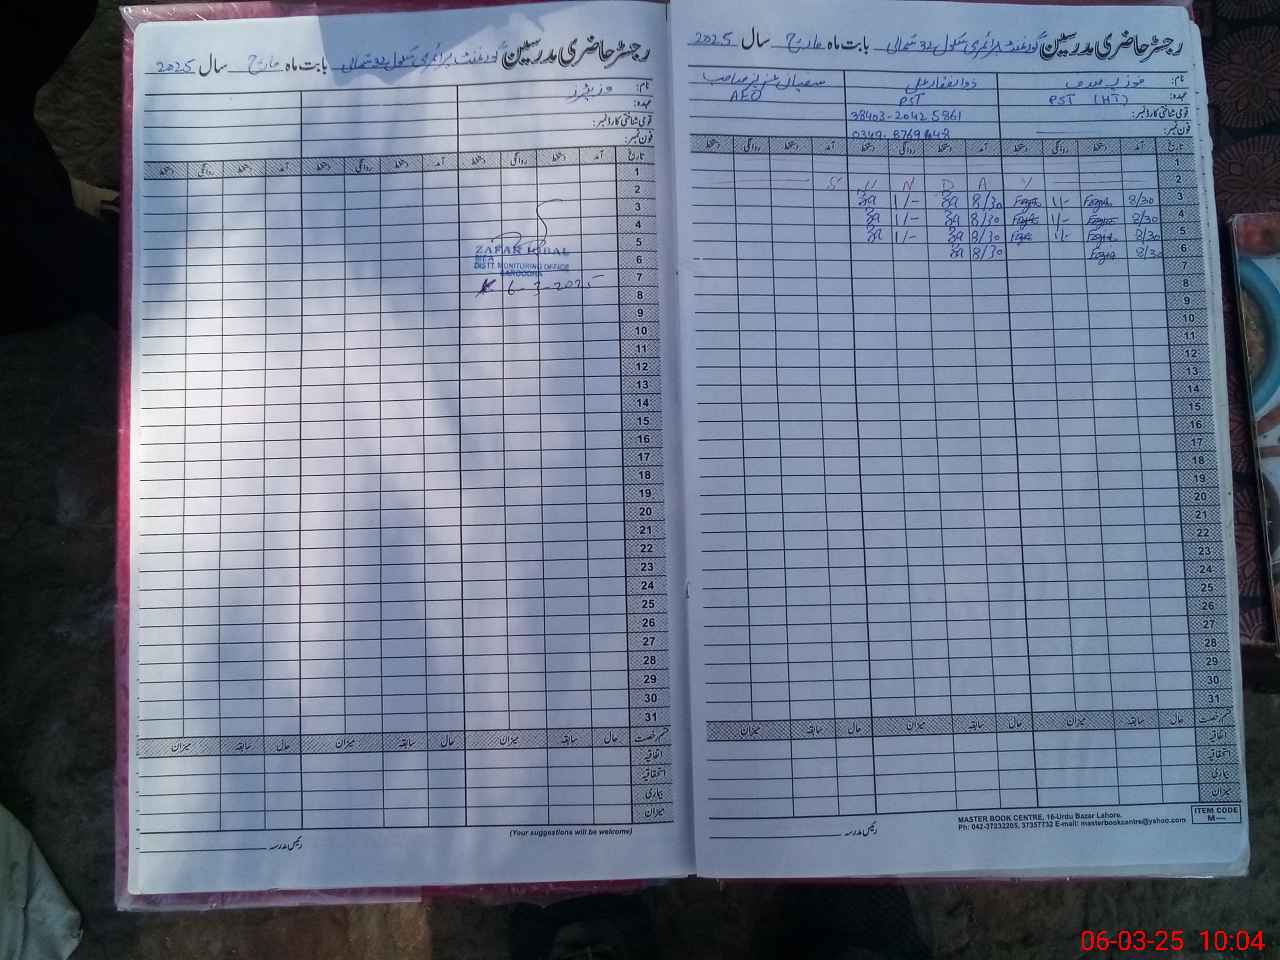 رجسٹر حاضری مدرسین گورنمنٹ پرائمری سکول 32 شمالی بابت ماہ مارچ سال 2025
نام:
عہدہ: PST (HT) PST AEO
قومی شناختی کارڈ نمبر: 38403-20425861
فون نمبر:
تاریخ آمد دستخط روانگی دستخط آمد دستخط روانگی دستخط آمد دستخط روانگی دستخط
1
2 S U N D A Y
3 8/30 1/- 8/30 1/-
4 8/30 1/- 8/30 1/-
5 8/30 1/- 8/30 1/-
6 8/30 8/30
7
8
9
10
11
12
13
14
15
16
17
18
19
20
21
22
23
24
25
26
27
28
29
30
31
قسم رخصت حال سابقہ میزان حال سابقہ میزان حال سابقہ میزان
اتفاقیہ
استحقاقیہ
بیماری
میزان
رئیس مدرسہ
MASTER BOOK CENTRE, 16-Urdu Bazar Lahore.
Ph: 042-37232205, 37357732 E-mail: masterbookcentre@yahoo.com
ITEM CODE
M—
رجسٹر حاضری مدرسین گورنمنٹ پرائمری سکول 32 شمالی بابت ماہ مارچ سال 2025
نام:
عہدہ:
قومی شناختی کارڈ نمبر:
فون نمبر:
تاریخ آمد دستخط روانگی دستخط آمد دستخط روانگی دستخط آمد دستخط روانگی دستخط
1
2
3
4
5
6
7
8
9
10
11
12
13
14
15
16
17
18
19
20
21
22
23
24
25
26
27
28
29
30
31
ZAFAR IQBAL
MEA
DISTT. MONITORING OFFICE
SARGODHA
6-3-2025
قسم رخصت حال سابقہ میزان حال سابقہ میزان حال سابقہ میزان
اتفاقیہ
استحقاقیہ
بیماری
میزان
(Your suggestions will be welcome)
رئیس مدرسہ
06-03-25 10:04